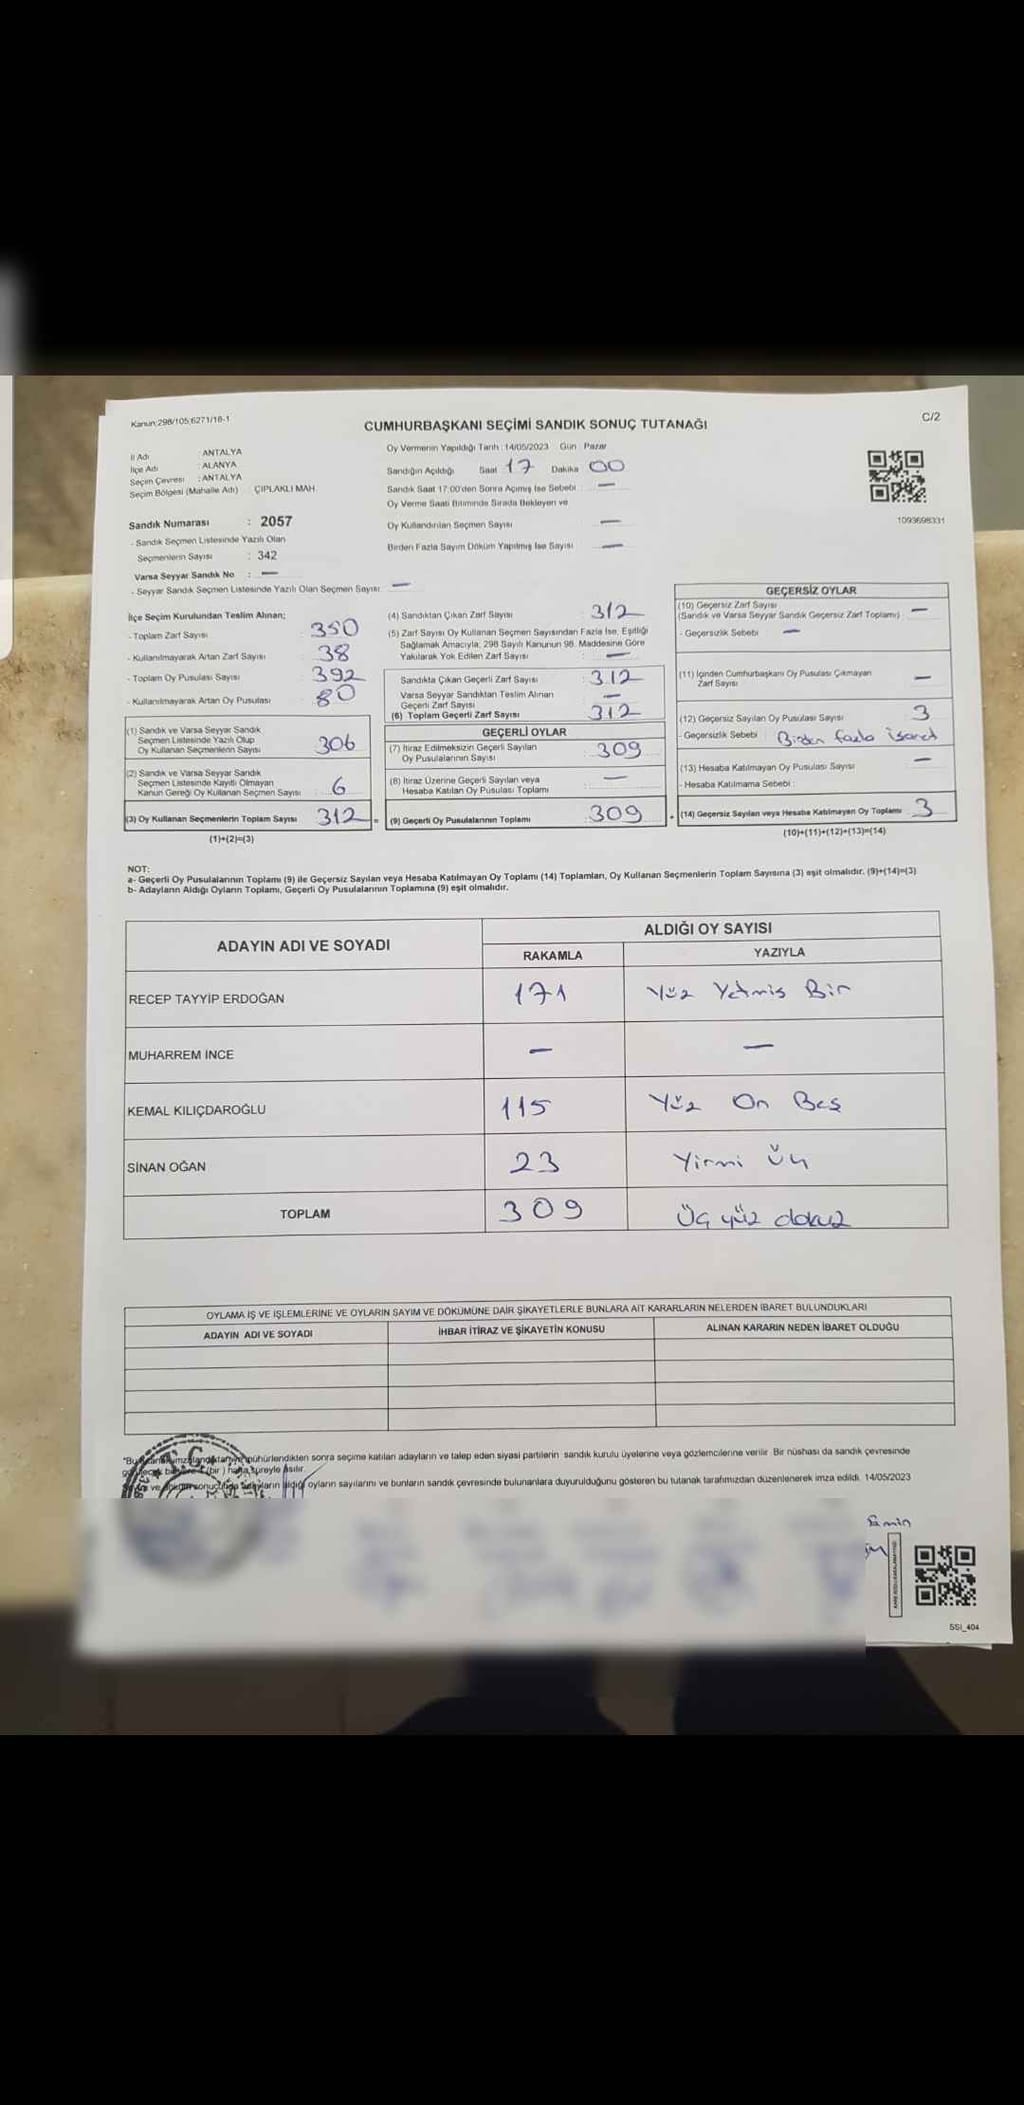 Kanun:298/105;6271/16-1
C/2
CUMHURBAŞKANI SEÇİMİ SANDIK SONUÇ TUTANAĞI
İl Adı : ANTALYA
İlçe Adı : ALANYA
Seçim Çevresi : ANTALYA
Seçim Bölgesi (Mahalle Adı) : ÇIPLAKLI MAH.
Sandık Numarası : 2057
- Sandık Seçmen Listesinde Yazılı Olan
Seçmenlerin Sayısı : 342
Varsa Seyyar Sandık No : —
- Seyyar Sandık Seçmen Listesinde Yazılı Olan Seçmen Sayısı: —
Oy Vermenin Yapıldığı Tarih :14/05/2023 Gün : Pazar
Sandığın Açıldığı Saat 17 Dakika 00
Sandık Saat 17:00'den Sonra Açılmış İse Sebebi : —
Oy Verme Saati Bitiminde Sırada Bekleyen ve
Oy Kullandırılan Seçmen Sayısı —
Birden Fazla Sayım Döküm Yapılmış İse Sayısı —
1093698331
İlçe Seçim Kurulundan Teslim Alınan;
- Toplam Zarf Sayısı : 350
- Kullanılmayarak Artan Zarf Sayısı : 38
- Toplam Oy Pusulası Sayısı : 392
- Kullanılmayarak Artan Oy Pusulası : 80
(1) Sandık ve Varsa Seyyar Sandık
Seçmen Listesinde Yazılı Olup
Oy Kullanan Seçmenlerin Sayısı : 306
(2) Sandık ve Varsa Seyyar Sandık
Seçmen Listesinde Kayıtlı Olmayan
Kanun Gereği Oy Kullanan Seçmen Sayısı : 6
(3) Oy Kullanan Seçmenlerin Toplam Sayısı : 312 =
(1)+(2)=(3)
(4) Sandıktan Çıkan Zarf Sayısı : 312
(5) Zarf Sayısı Oy Kullanan Seçmen Sayısından Fazla İse, Eşitliği
Sağlamak Amacıyla, 298 Sayılı Kanunun 98. Maddesine Göre
Yakılarak Yok Edilen Zarf Sayısı : —
Sandıkta Çıkan Geçerli Zarf Sayısı : 312
Varsa Seyyar Sandıktan Teslim Alınan
Geçerli Zarf Sayısı : —
(6) Toplam Geçerli Zarf Sayısı : 312
GEÇERLİ OYLAR
(7) İtiraz Edilmeksizin Geçerli Sayılan
Oy Pusulalarının Sayısı : 309
(8) İtiraz Üzerine Geçerli Sayılan veya
Hesaba Katılan Oy Pusulası Toplamı : —
(9) Geçerli Oy Pusulalarının Toplamı : 309 +
GEÇERSİZ OYLAR
(10) Geçersiz Zarf Sayısı
(Sandık ve Varsa Seyyar Sandık Geçersiz Zarf Toplamı) : —
- Geçersizlik Sebebi : —
(11) İçinden Cumhurbaşkanı Oy Pusulası Çıkmayan
Zarf Sayısı : —
(12) Geçersiz Sayılan Oy Pusulası Sayısı : 3
- Geçersizlik Sebebi : Birden fazla işaret
(13) Hesaba Katılmayan Oy Pusulası Sayısı : —
- Hesaba Katılmama Sebebi :
(14) Geçersiz Sayılan veya Hesaba Katılmayan Oy Toplamı : 3
(10)+(11)+(12)+(13)=(14)
NOT:
a- Geçerli Oy Pusulalarının Toplamı (9) ile Geçersiz Sayılan veya Hesaba Katılmayan Oy Toplamı (14) Toplamları, Oy Kullanan Seçmenlerin Toplam Sayısına (3) eşit olmalıdır. (9)+(14)=(3)
b- Adayların Aldığı Oyların Toplamı, Geçerli Oy Pusulalarının Toplamına (9) eşit olmalıdır.
ADAYIN ADI VE SOYADI
ALDIĞI OY SAYISI
RAKAMLA YAZIYLA
RECEP TAYYİP ERDOĞAN 171 Yüz Yetmiş Bir
MUHARREM İNCE — —
KEMAL KILIÇDAROĞLU 115 Yüz On Beş
SİNAN OĞAN 23 Yirmi Üç
TOPLAM 309 Üç yüz dokuz
OYLAMA İŞ VE İŞLEMLERİNE VE OYLARIN SAYIM VE DÖKÜMÜNE DAİR ŞİKAYETLERLE BUNLARA AİT KARARLARIN NELERDEN İBARET BULUNDUKLARI
ADAYIN ADI VE SOYADI İHBAR İTİRAZ VE ŞİKAYETİN KONUSU ALINAN KARARIN NEDEN İBARET OLDUĞU
mühürlendikten sonra seçime katılan adayların ve talep eden siyasi partilerin sandık kurulu üyelerine veya gözlemcilerine verilir. Bir nüshası da sandık çevresinde
(bir) hafta süreyle asılır.
aldığı oyların sayılarını ve bunların sandık çevresinde bulunanlara duyurulduğunu gösteren bu tutanak tarafımızdan düzenlenerek imza edildi. 14/05/2023
T.C.
SSİ_404